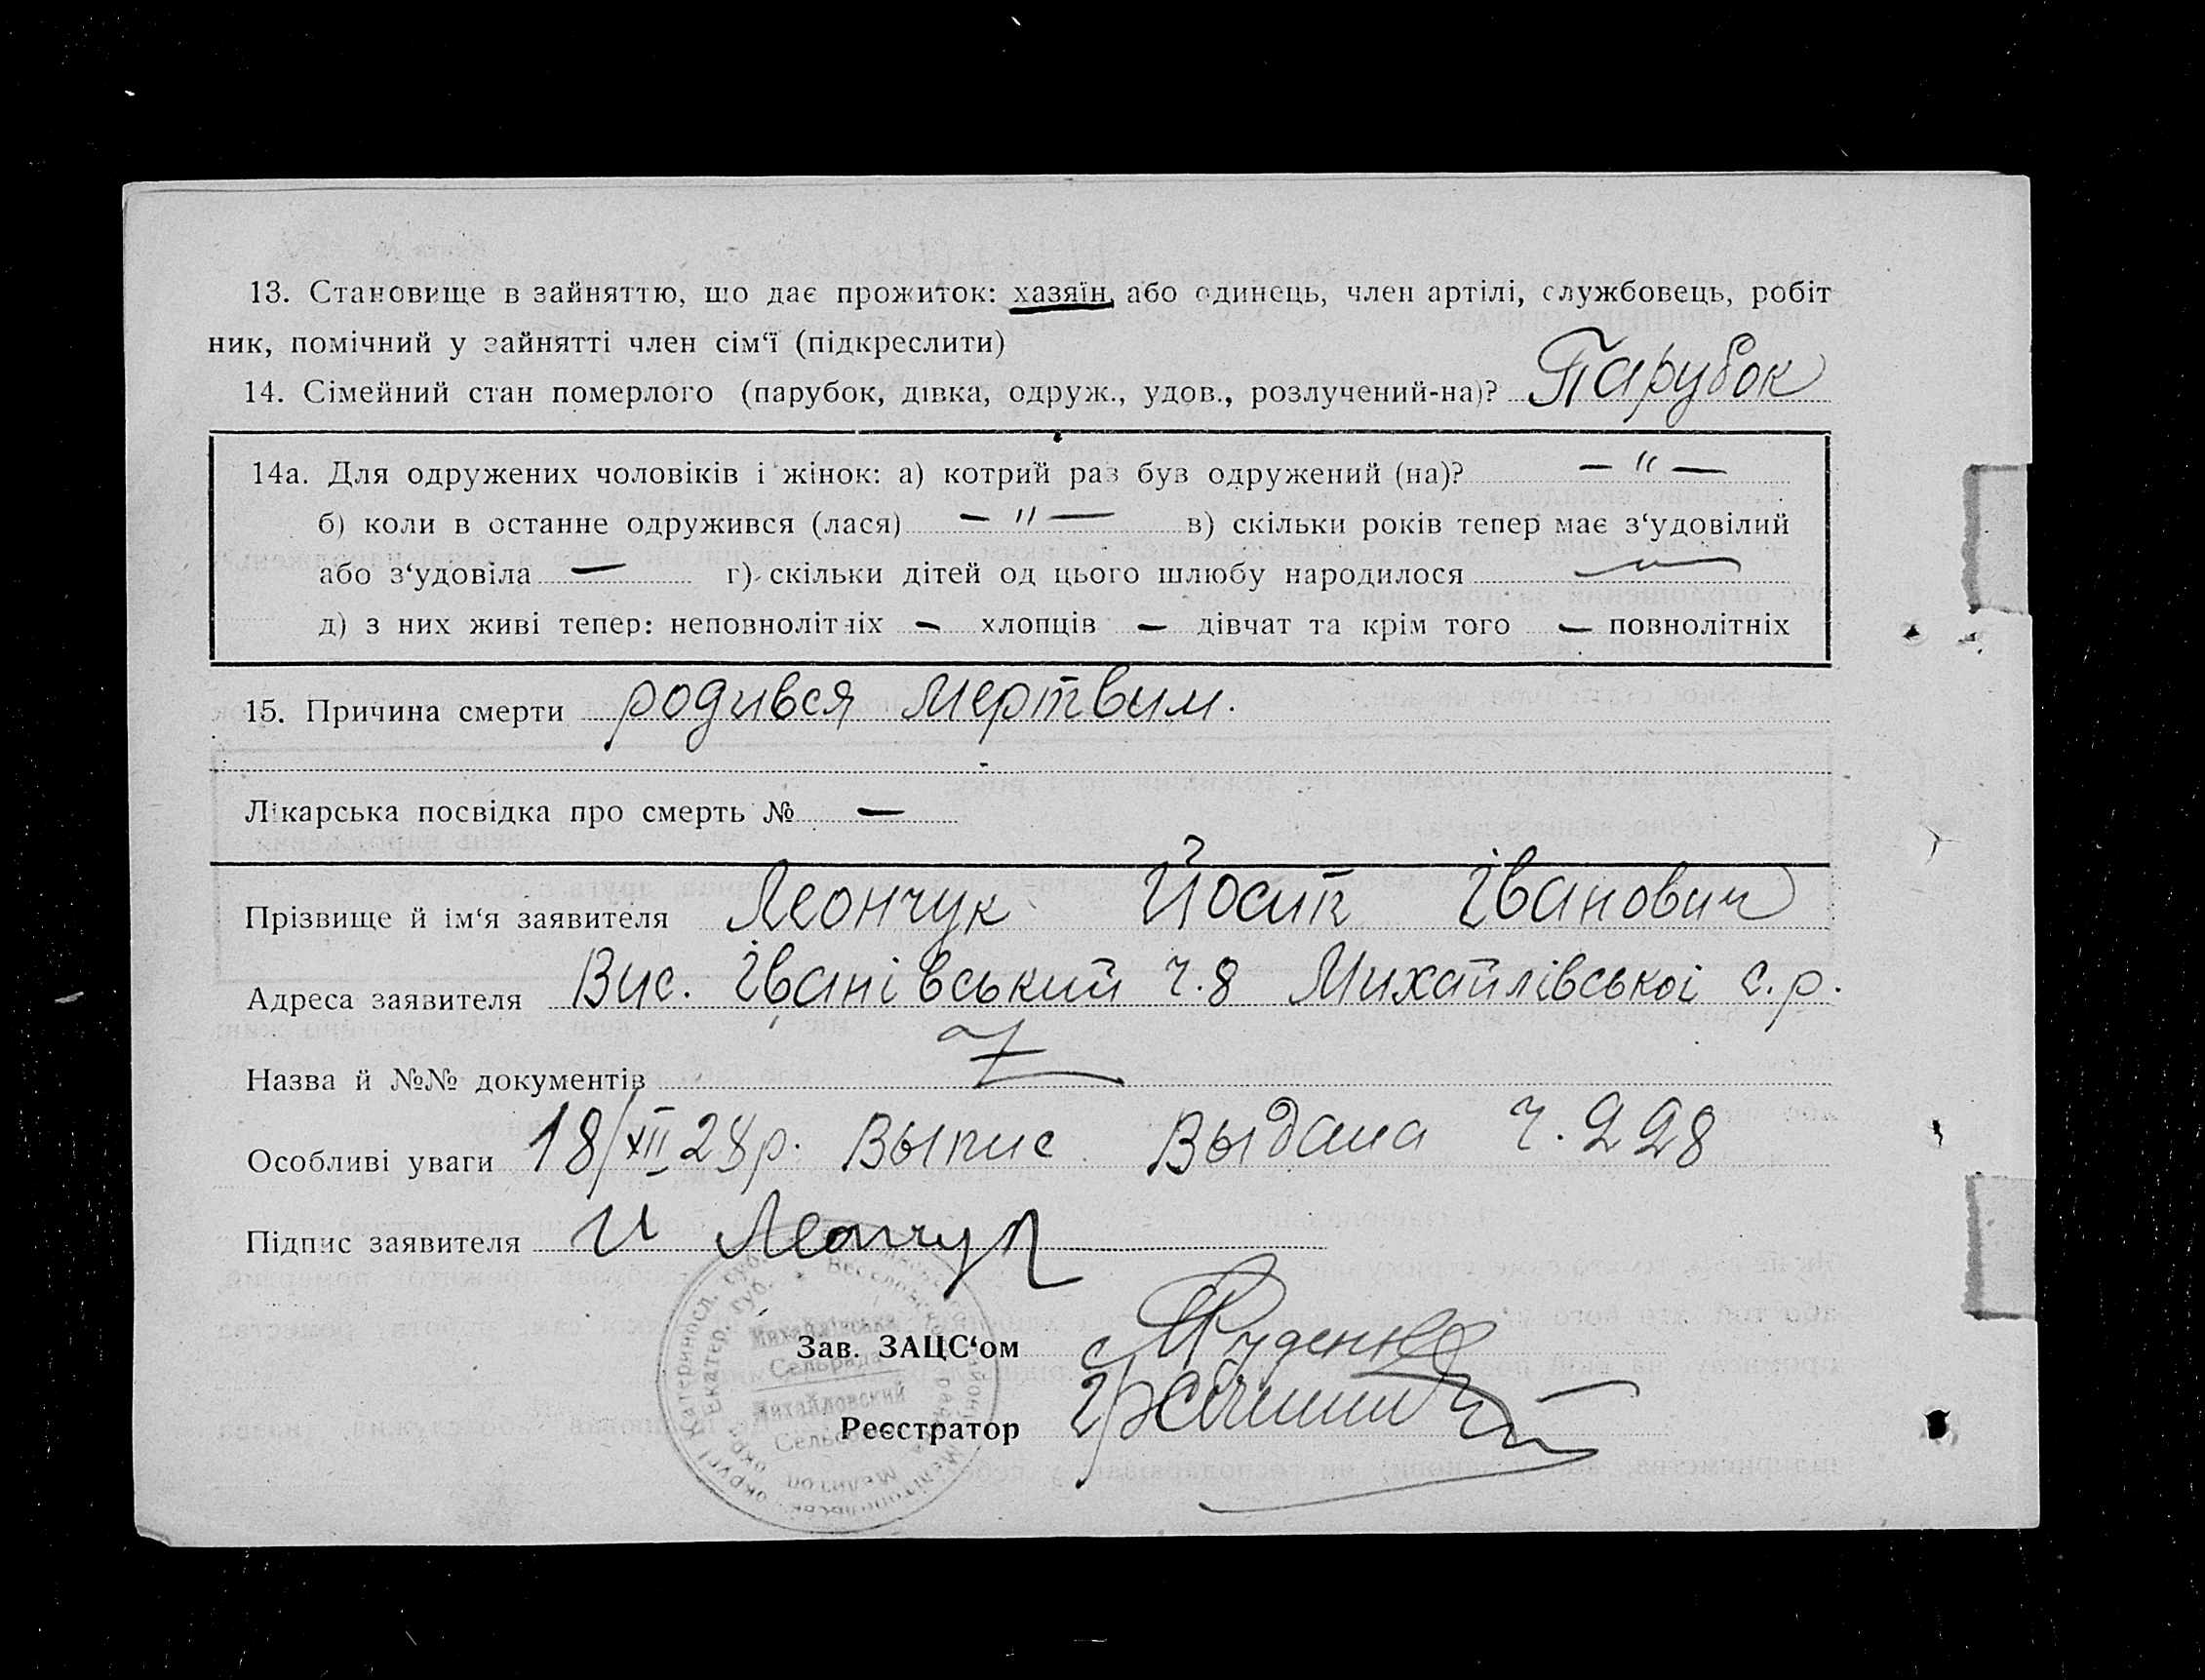 13. Становище в зайняттю, що дає прожиток: хазяїн, або одинець, член артілі, службовець, робіт
ник, помічний у зайнятті член сім‘ї (підкреслити)
14. Сімейний стан померлого (парубок, дівка, одруж., удов., розлучений-на)? Парубок
14а. Для одружених чоловіків і жінок: а) котрий раз був одружений (на)? — " —
б) коли в останне одружився (лася) — " — в) скільки років тепер має з‘удовілий
або з‘удовіла — г) скільки дітей од цього шлюбу народилося — " —
д) з них живі тепер: неповнолітніх — хлопців — дівчат та крім того — повнолітніх
15. Причина смерти родився мертвим.
Лікарська посвідка про смерть № —
Прізвище й ім‘я заявителя Леончук Йосип Іванович
Адреса заявителя Вис. Іванівський ч.8 Михайлівської с.р.
Назва й №№ документів
Особливі уваги 18/XII 28р. Выпис Выдана ч. 228
Підпис заявителя И Леончук
Михайлівська
Зав. ЗАЦС‘ом Руденко
Сельрада
Михайловский
Реєстратор
Сельсовет